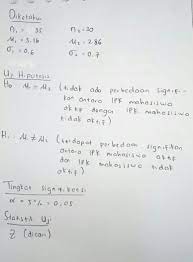 Diketahui
n₁ = 35 n₂ = 30
x̄₁ = 3.16 x̄₂ = 2.86
σ₁ = 0.6 σ₂ = 0.7
Uji Hipotesis
H₀ μ₁ = μ₂ (tidak ada perbedaan signifi-
kan antara IPK mahasiswa
aktif dengan IPK mahasiswa
tidak aktif)
H₁ μ₁ ≠ μ₂ (terdapat perbedaan signifikan
antara IPK mahasiswa aktif
dan IPK mahasiswa tidak
aktif)
Tingkat signifikansi
α = 5% = 0,05
Statistik Uji
Z (dicari)